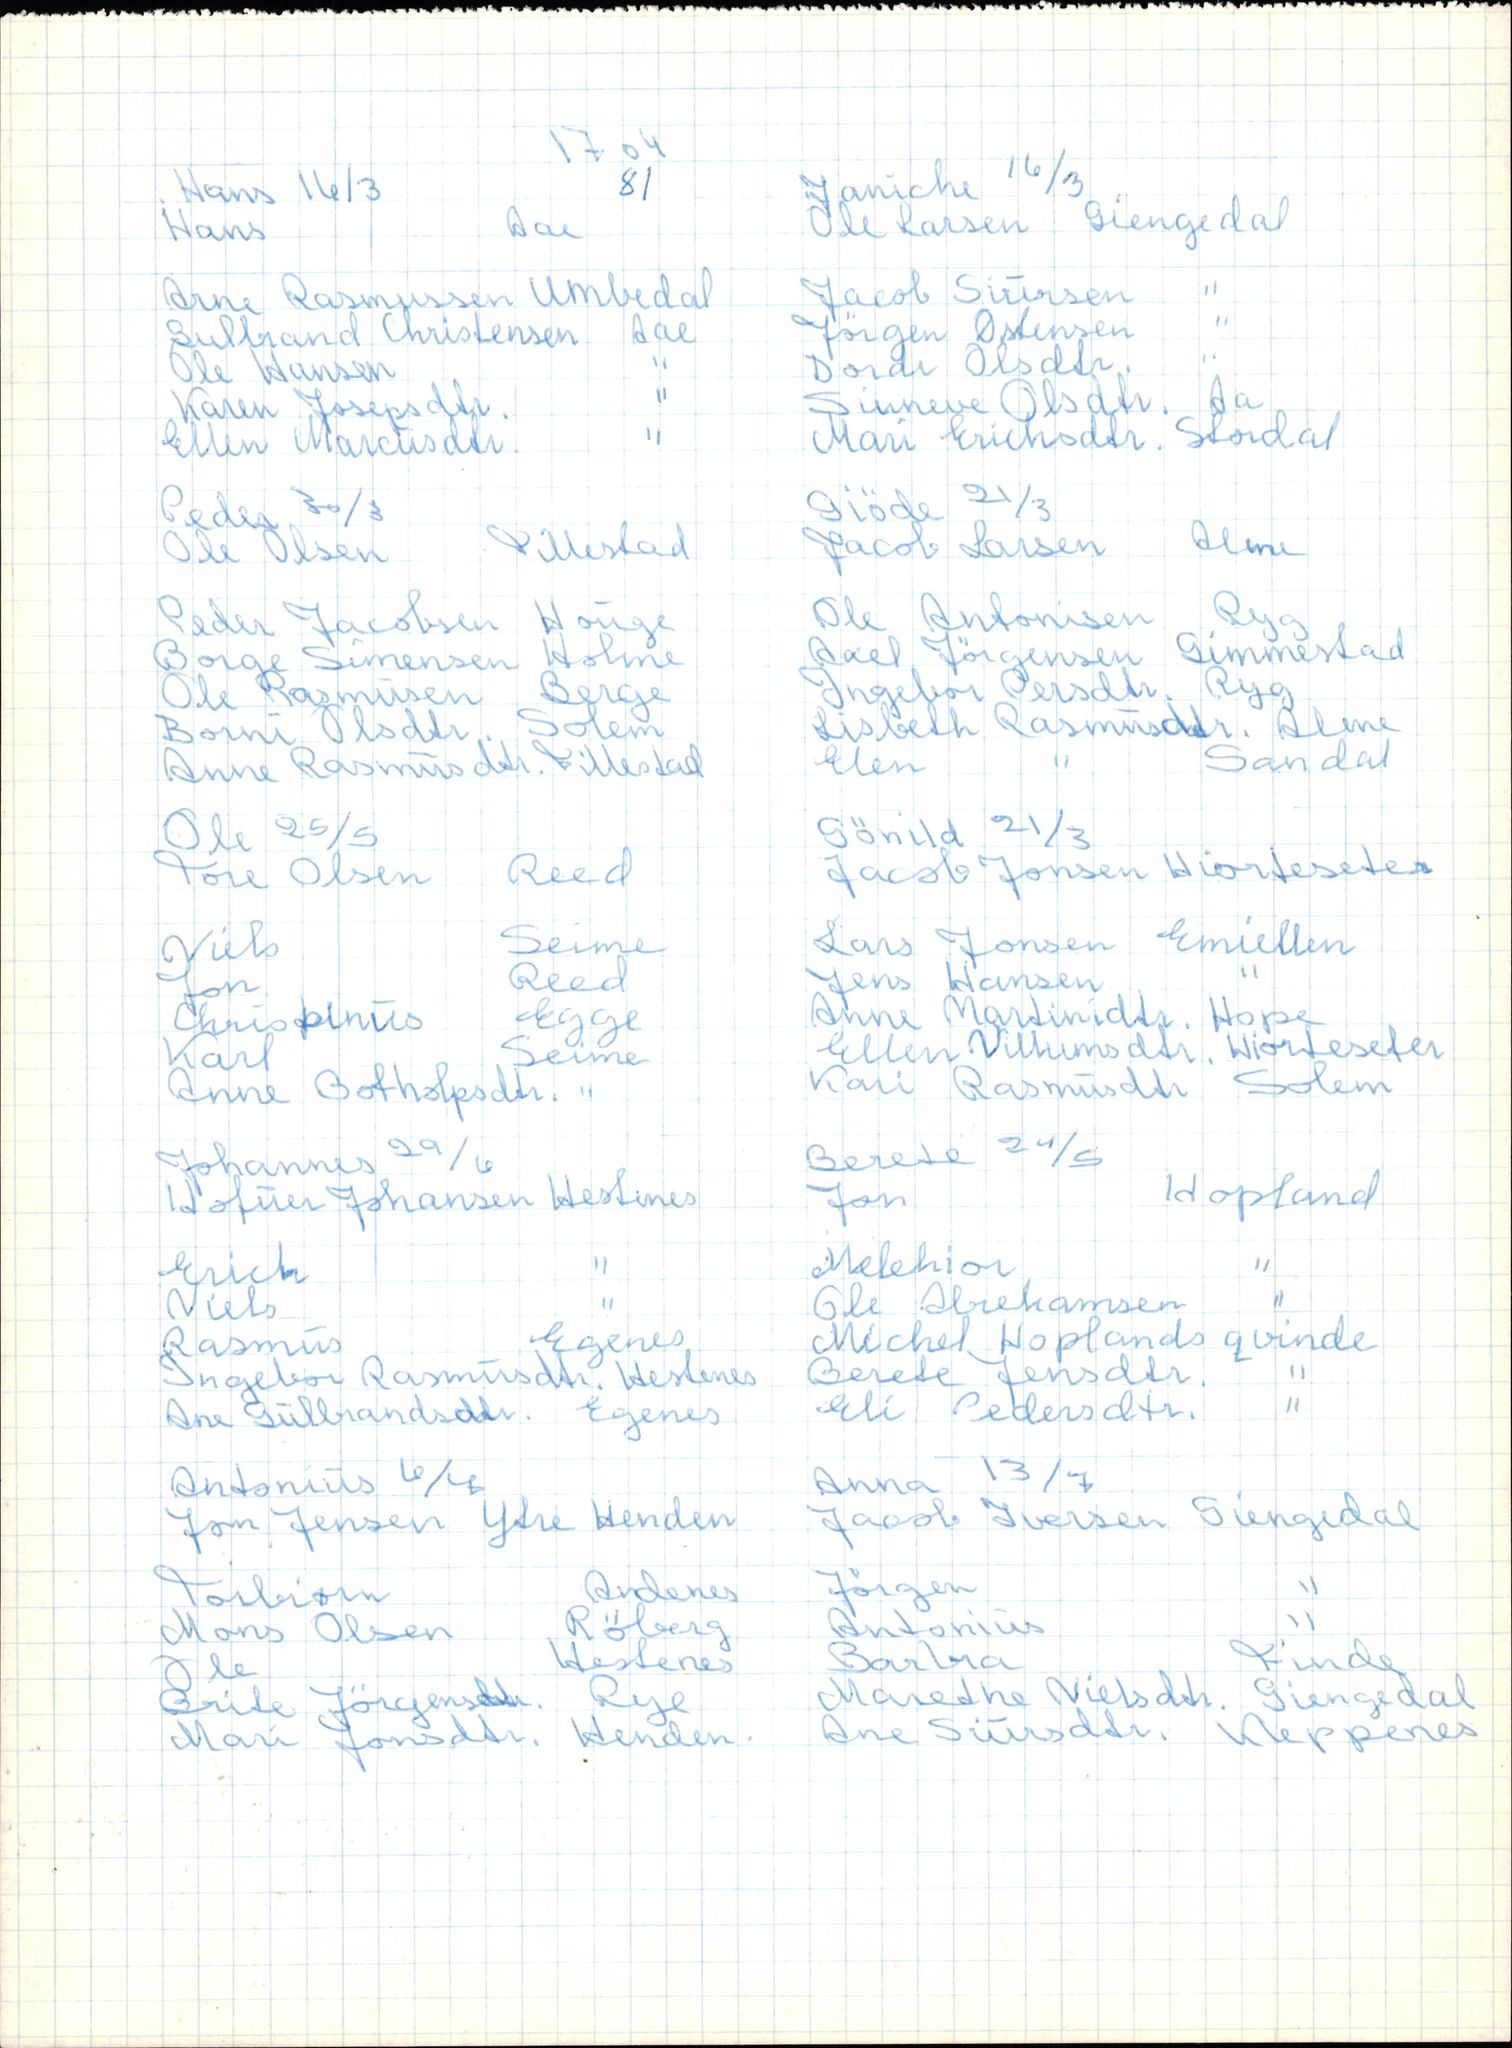 1704
81
Hans 16/3
Hans Aae
Arne Rasmussen Umbedal
Gulbrand Christensen Aae
Ole Hansen "
Karen Josepsdtr. "
Ellen Marcüsdtr. "
Peder 30/3
Ole Olsen Tillestad
Peder Jacobsen Houge
Borge Simensen Holme
Ole Rasmüsen Berge
Borni Olsdtr. Solem
Anne Rasmüsdtr. Tillestad
Ole 25/5
Tore Olsen Reed
Niels Seime
Jon Reed
Chrispinüs Egge
Karl Seime
Anne Botholpsdtr. "
Johannes 29/6
Hofüer Johansen Hestenes
Erich "
Niels "
Rasmüs Egenes
Ingebor Rasmüsdtr. Hestenes
Ane Gülbrandsdtr. Egenes
Antoniüs 6/4
Jon Jensen Ytre Henden
Torbiørn Andenes
Mons Olsen Röberg
Ole Hestenes
Brite Jörgensdtr. Rye
Mari Jonsdtr. Henden.
Janiche 16/3
Ole Larsen Giengedal
Jacob Siürsen "
Jörgen Ostensen "
Dorde Olsdtr. "
Sinneve Olsdtr. Aa
Mari Erichsdtr. Stordal
Giöde 21/3
Jacob Larsen Alme
Ole Antonisen Ryg
Axel Jörgensen Gimmestad
Ingebor Persdtr. Ryg
Lisbeth Rasmüsdtr. Alme
Elen " Sandal
Gönild 21/3
Jacob Jonsen Hiorteseter
Lars Jonsen Emiellen
Jens Hansen "
Anne Martinidtr. Hope
Ellen Villumsdtr. Hiorteseter
Kari Rasmüsdtr Solem
Berete 24/5
Jon Hopland
Melchior "
Ole Abrehamsen "
Michel Hoplands qvinde
Berete Jensdtr. "
Eli Pedersdtr. "
Anna 13/7
Jacob Iversen Giengedal
Jörgen "
Antoniüs "
Barbra Finde
Marethe Nielsdtr. Giengedal
Ane Siürsdtr. Kleppenes